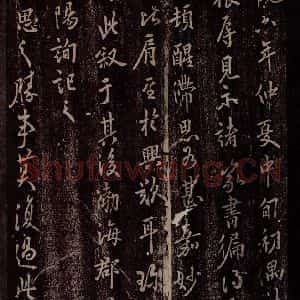 六年仲夏中旬初偶
見示諸家書偏得
頓醒滯思甚嘉妙
比肩至於興致耳
此叙于其後渤海郡
陽詢記之
思之勝事莫復過此
Shufawang.CN